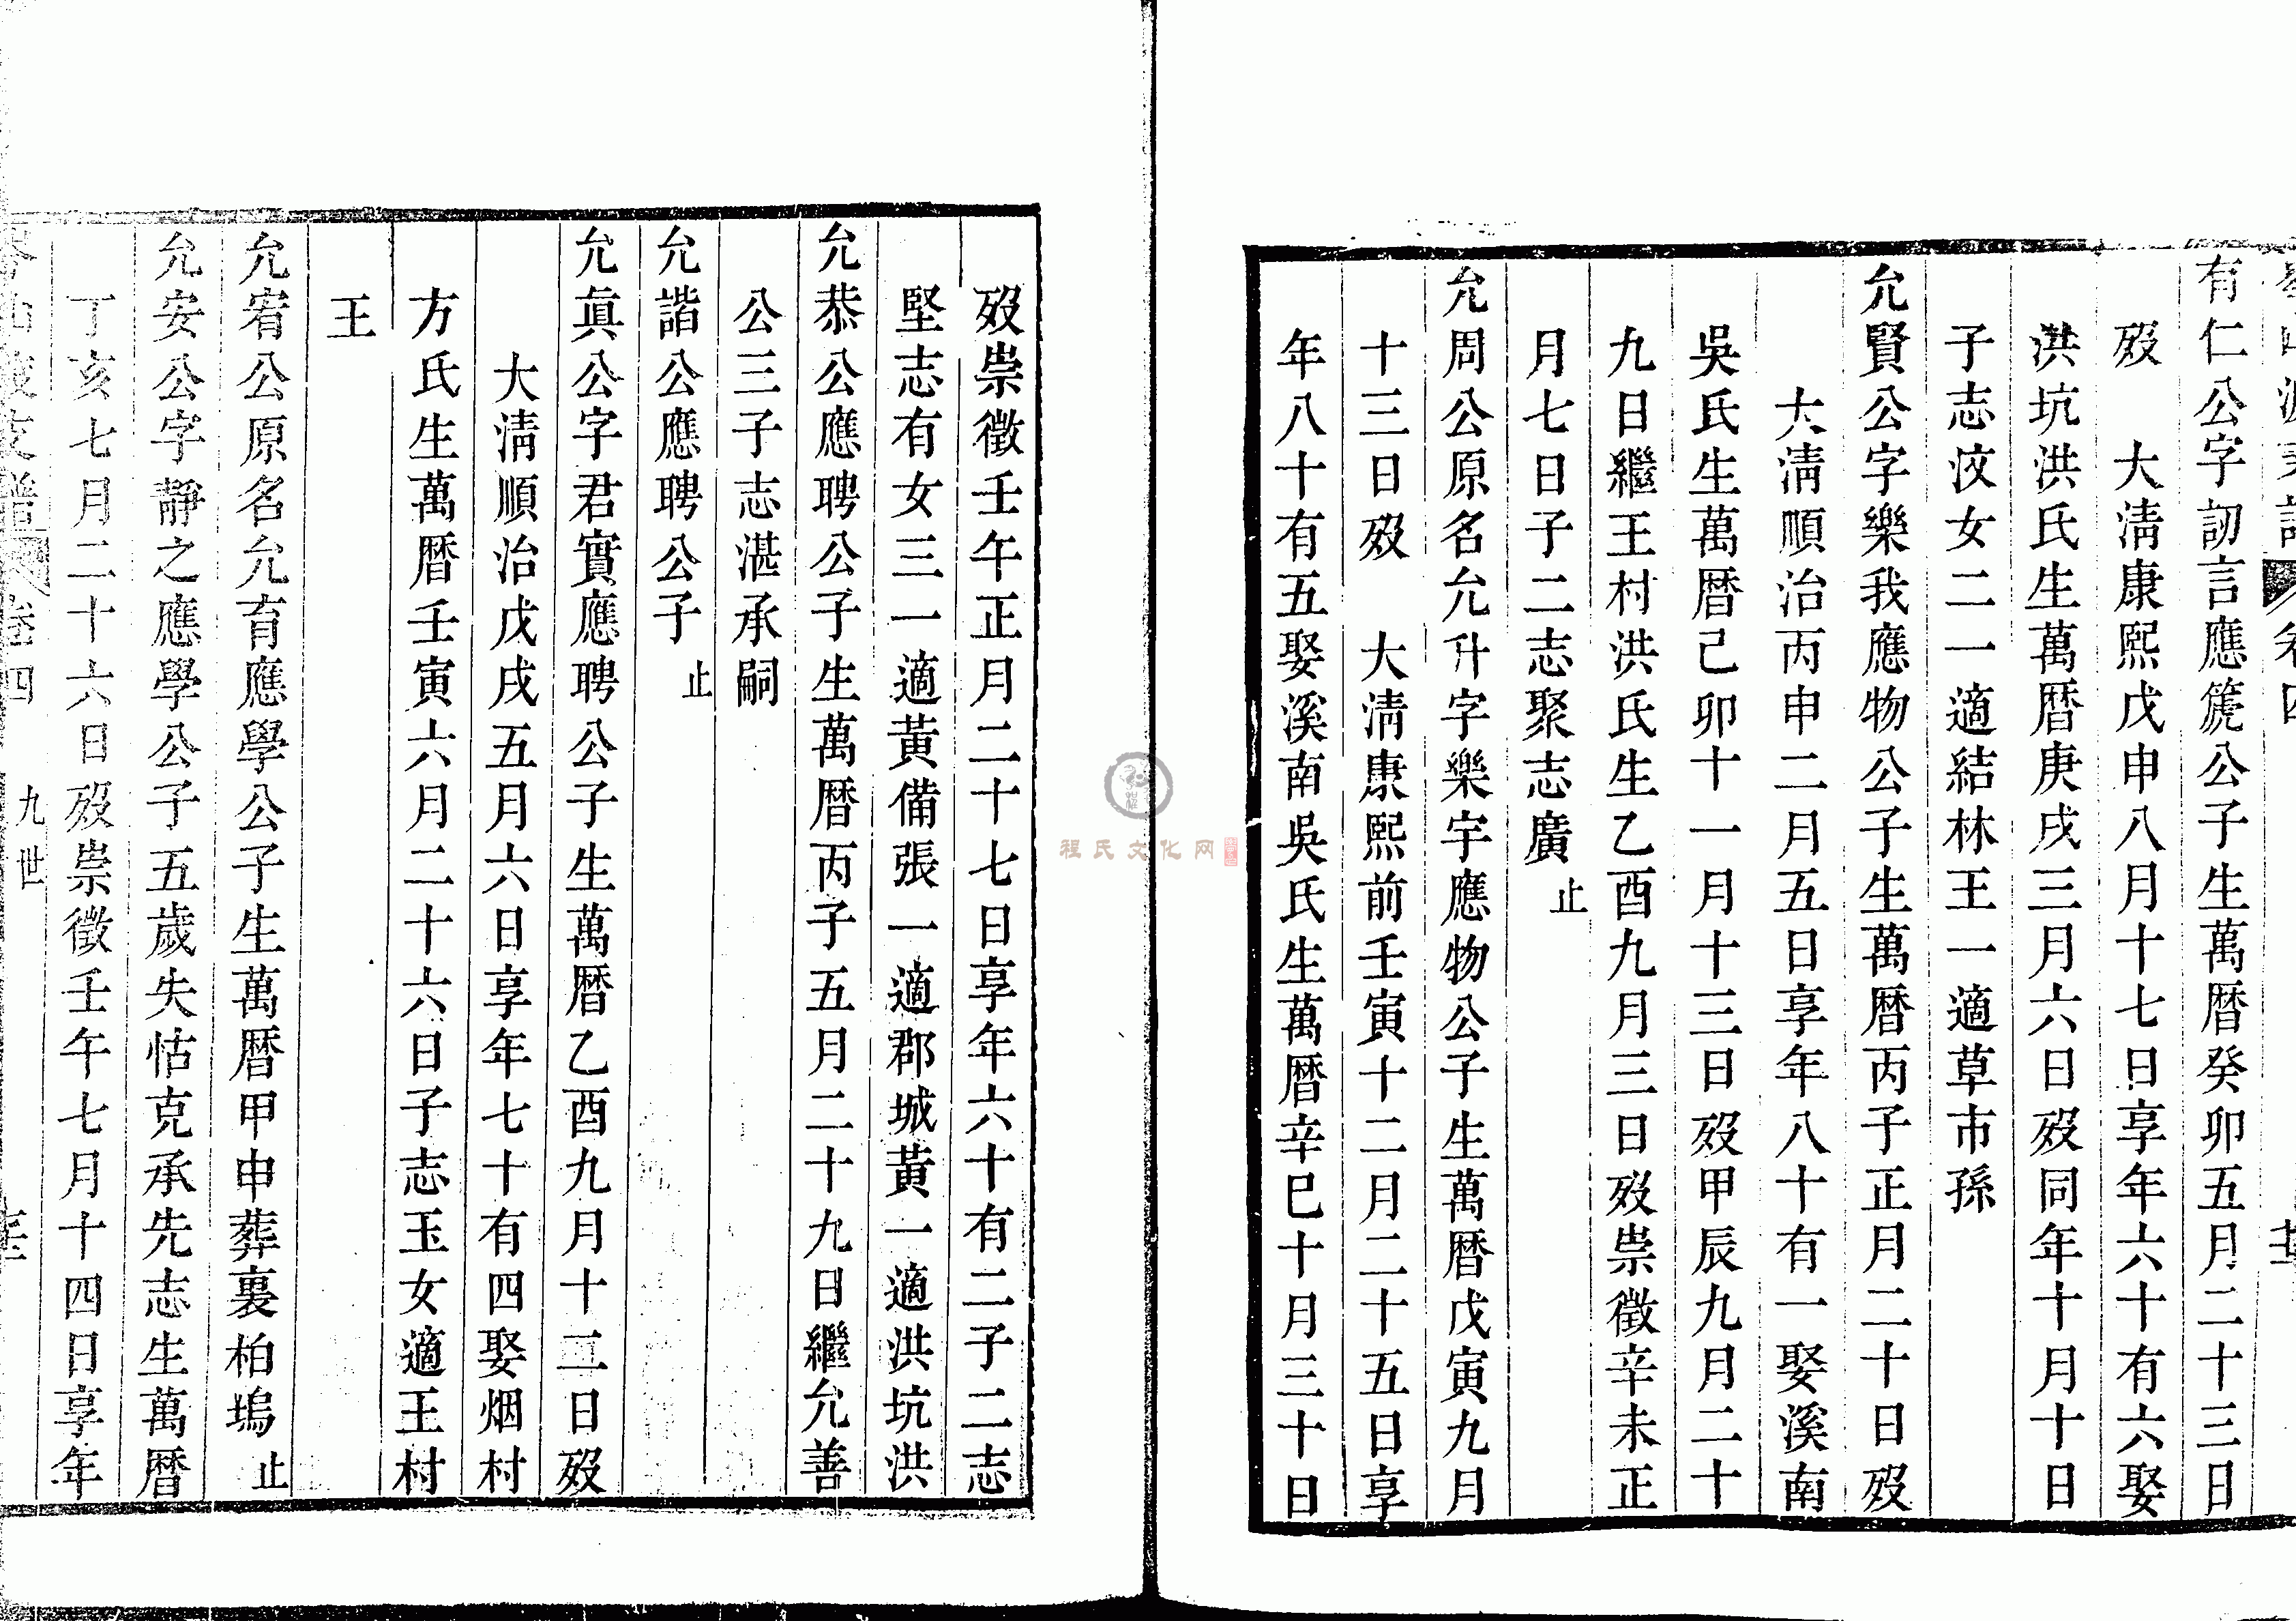 卷四
有仁公字訒言應箎公子生萬曆癸卯五月二十三日
歿　大淸康熙戊申八月十七日享年六十有六娶
洪坑洪氏生萬曆庚戌三月六日歿同年十月十日
子志洨女二一適結林王一適草市孫
允賢公字樂我應物公子生萬曆丙子正月二十日歿
大淸順治丙申二月五日享年八十有一娶溪南
吳氏生萬曆己卯十一月十三日歿甲辰九月二十
九日繼王村洪氏生乙酉九月三日歿崇徵辛未正
月七日子二志聚志廣 止
允周公原名允升字樂宇應物公子生萬曆戊寅九月
十三日歿　大淸康熙前壬寅十二月二十五日享
年八十有五娶溪南吳氏生萬曆辛巳十月三十日
歿崇徵壬午正月二十七日享年六十有二子二志
堅志有女三一適黃備張一適郡城黃一適洪坑洪
允恭公應聘公子生萬曆丙子五月二十九日繼允善
公三子志湛承嗣
允諧公應聘公子 止
允眞公字君實應聘公子生萬曆乙酉九月十二日歿
大淸順治戊戌五月六日享年七十有四娶烟村
方氏生萬曆壬寅六月二十六日子志玉女適王村
王
允宥公原名允育應學公子生萬曆甲申葬裏柏塢 止
允安公字靜之應學公子五歲失怙克承先志生萬曆
丁亥七月二十六日歿崇徵壬午七月十四日享年
支譜 卷四 九世
程氏文化网